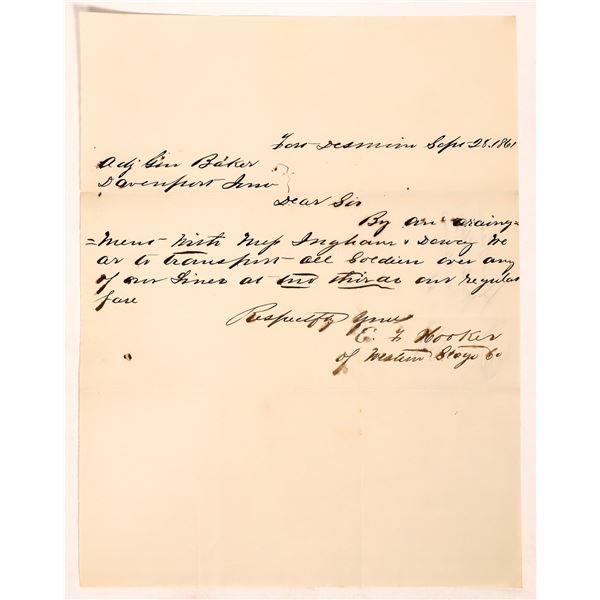 Fort Desmoin Sept 28. 1861
Adj Gen Baker
Davenport Iowa
Dear Sir
By an araing=
=ment With Mess Ingham & Dewey We
ar to transport all Soldiers over any
of our Lines at two thirds our regular
fare
Respectfy Yours
E. F Hooker
of Western Stage Co